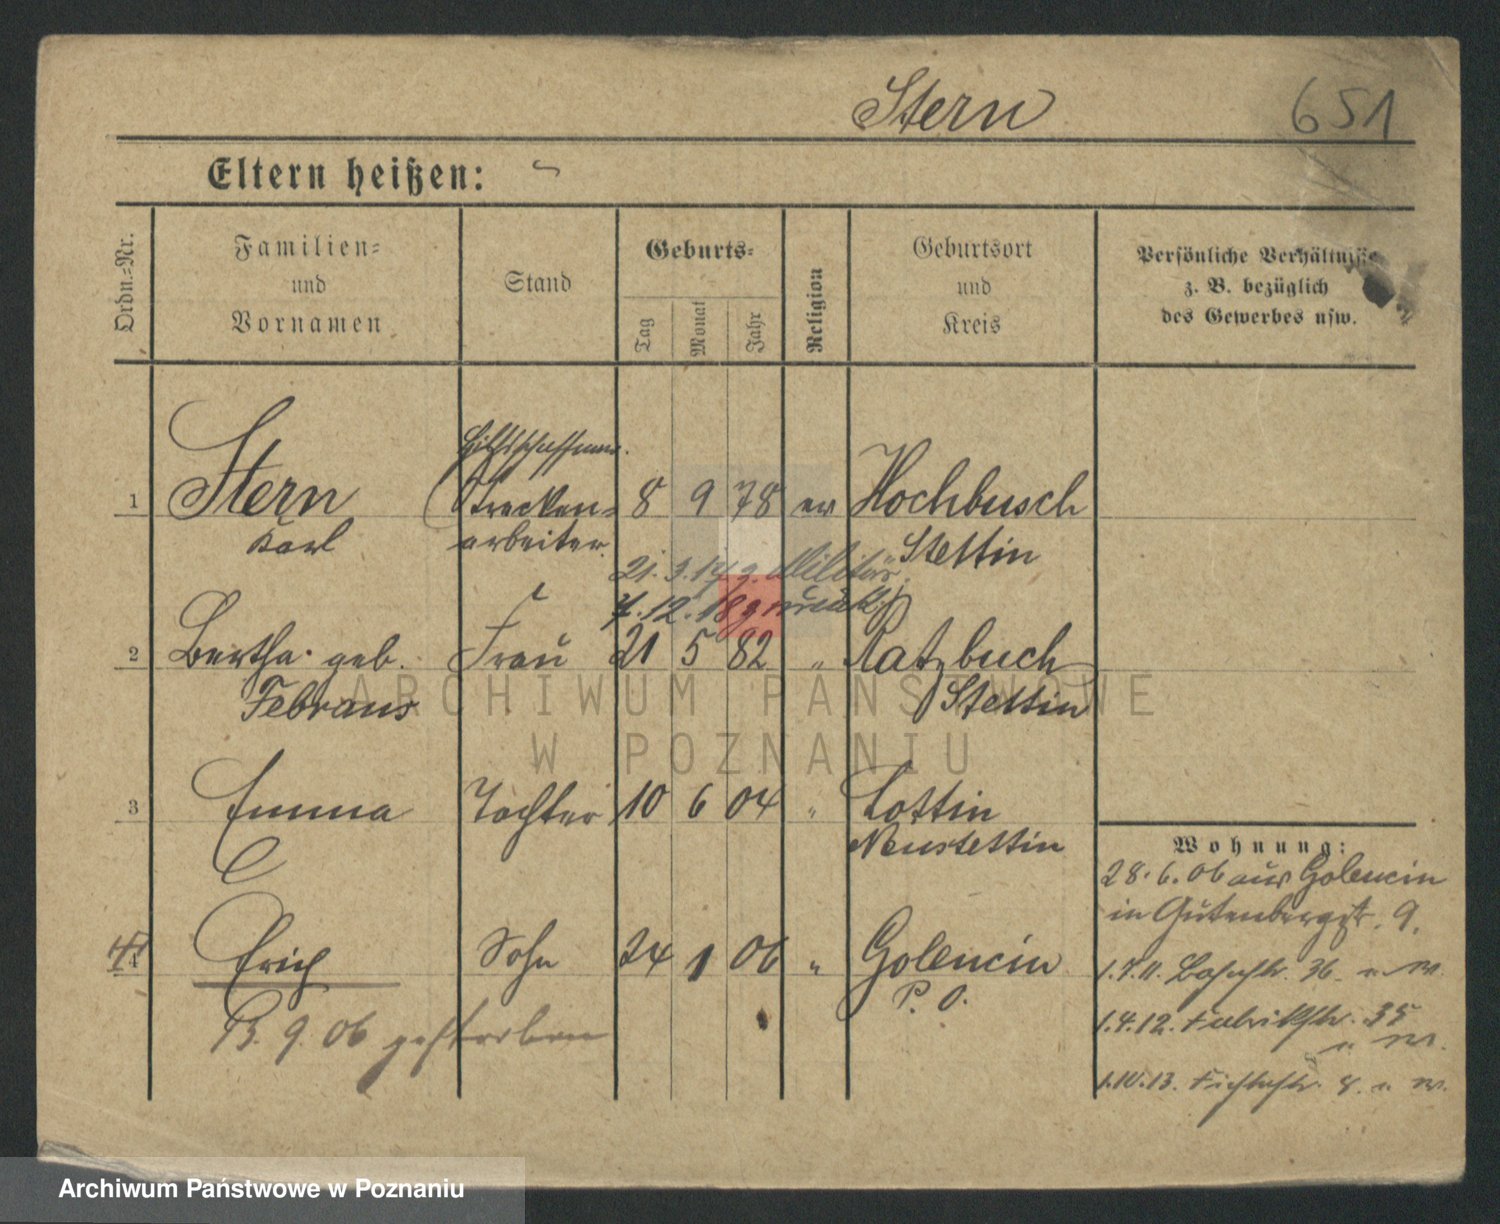 Stern 651
Eltern heißen:
Ordn.-Nr.
Familien-
und
Vornamen
Stand
Geburts-
Tag
Monat
Jahr
Religion
Geburtsort
und
Kreis
Persönliche Verhältnisse
z. B. bezüglich
des Gewerbes usw.
Hilfsschaffner.
1 Stern Strecken- 8 9 78 ev Hochbusch
Karl arbeiter. Stettin
21.3.17 z. Militär
7.12.18 zurück
2 Bertha geb. Frau 21 5 82 " Ratzbuch
Febraus Stettin
3 Emma Tochter 10 6 04 " Lottin
Neustettin
Wohnung:
28.6.06 aus Golencin
in Gutenbergstr. 9.
4 Erich Sohn 24 1 06 " Golencin
P. O.
13.9.06 gestorben
1.7.11. Bahnstr. 36
1.4.12. Fabrikstr. 35
1.10.13. Fichtestr. 8.
ARCHIWUM PAŃSTWOWE
W POZNANIU
Archiwum Państwowe w Poznaniu